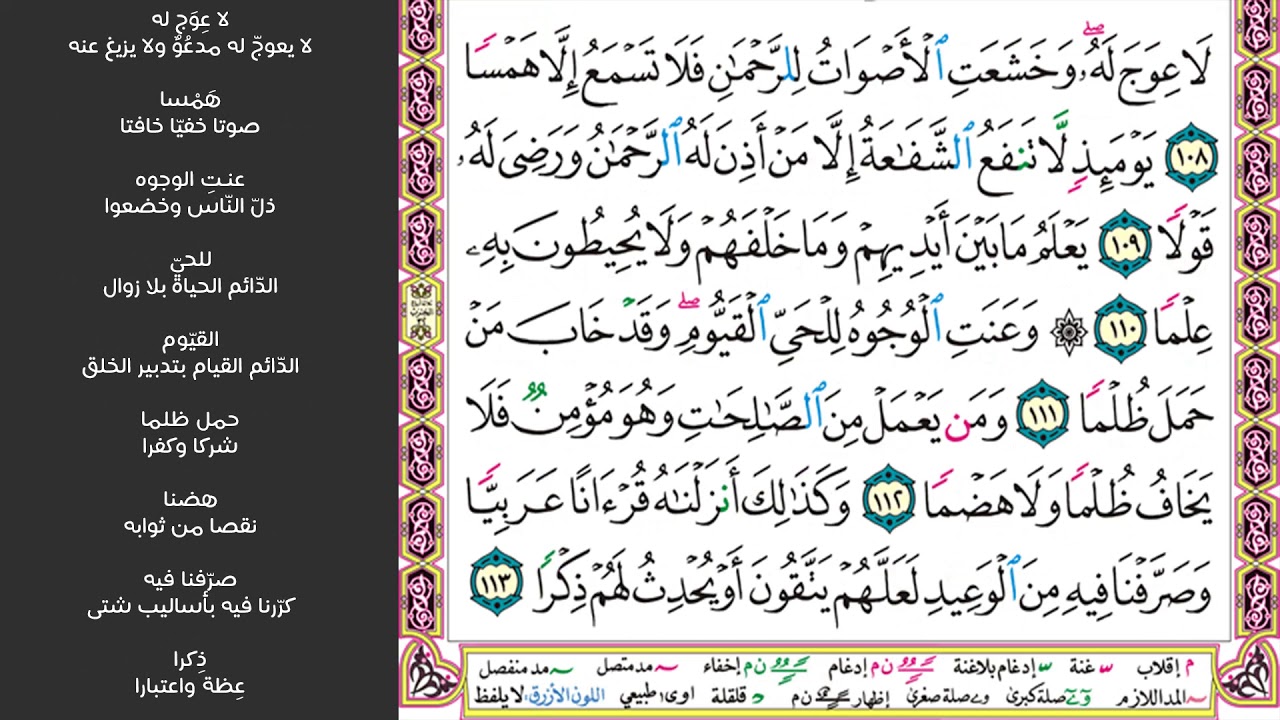 لَا عِوَجَ لَهُۥ ۖ وَخَشَعَتِ ٱلْأَصْوَاتُ لِلرَّحْمَٰنِ فَلَا تَسْمَعُ إِلَّا هَمْسًا
١٠٨ يَوْمَئِذٍ لَّا تَنفَعُ ٱلشَّفَٰعَةُ إِلَّا مَنْ أَذِنَ لَهُ ٱلرَّحْمَٰنُ وَرَضِىَ لَهُۥ
قَوْلًا ١٠٩ يَعْلَمُ مَا بَيْنَ أَيْدِيهِمْ وَمَا خَلْفَهُمْ وَلَا يُحِيطُونَ بِهِۦ
عِلْمًا ١١٠ ۞ وَعَنَتِ ٱلْوُجُوهُ لِلْحَىِّ ٱلْقَيُّومِ ۖ وَقَدْ خَابَ مَنْ
حَمَلَ ظُلْمًا ١١١ وَمَن يَعْمَلْ مِنَ ٱلصَّٰلِحَٰتِ وَهُوَ مُؤْمِنٌ فَلَا
يَخَافُ ظُلْمًا وَلَا هَضْمًا ١١٢ وَكَذَٰلِكَ أَنزَلْنَٰهُ قُرْءَانًا عَرَبِيًّا
وَصَرَّفْنَا فِيهِ مِنَ ٱلْوَعِيدِ لَعَلَّهُمْ يَتَّقُونَ أَوْ يُحْدِثُ لَهُمْ ذِكْرًا ١١٣
م إقلاب غنة إدغام بلاغنة ن م إدغام ن م إخفاء مد متصل مد منفصل
المد اللازم صلة كبرى صلة صغرى إظهار ن م قلقلة اوى؛ طبيعي اللون الأزرق؛ لا يلفظ
لا عِوَج له
لا يعوجّ له مدعُوٌ ولا يزيغ عنه
هَمْسا
صوتا خفيّا خافتا
عنتِ الوجوه
ذلّ النّاس وخضعوا
للحيّ
الدّائم الحياة بلا زوال
القيّوم
الدّائم القيام بتدبير الخلق
حمل ظلما
شركا وكفرا
هضنا
نقصا من ثوابه
صرّفنا فيه
كرّرنا فيه بأساليب شتى
ذِكرا
عِظة واعتبارا